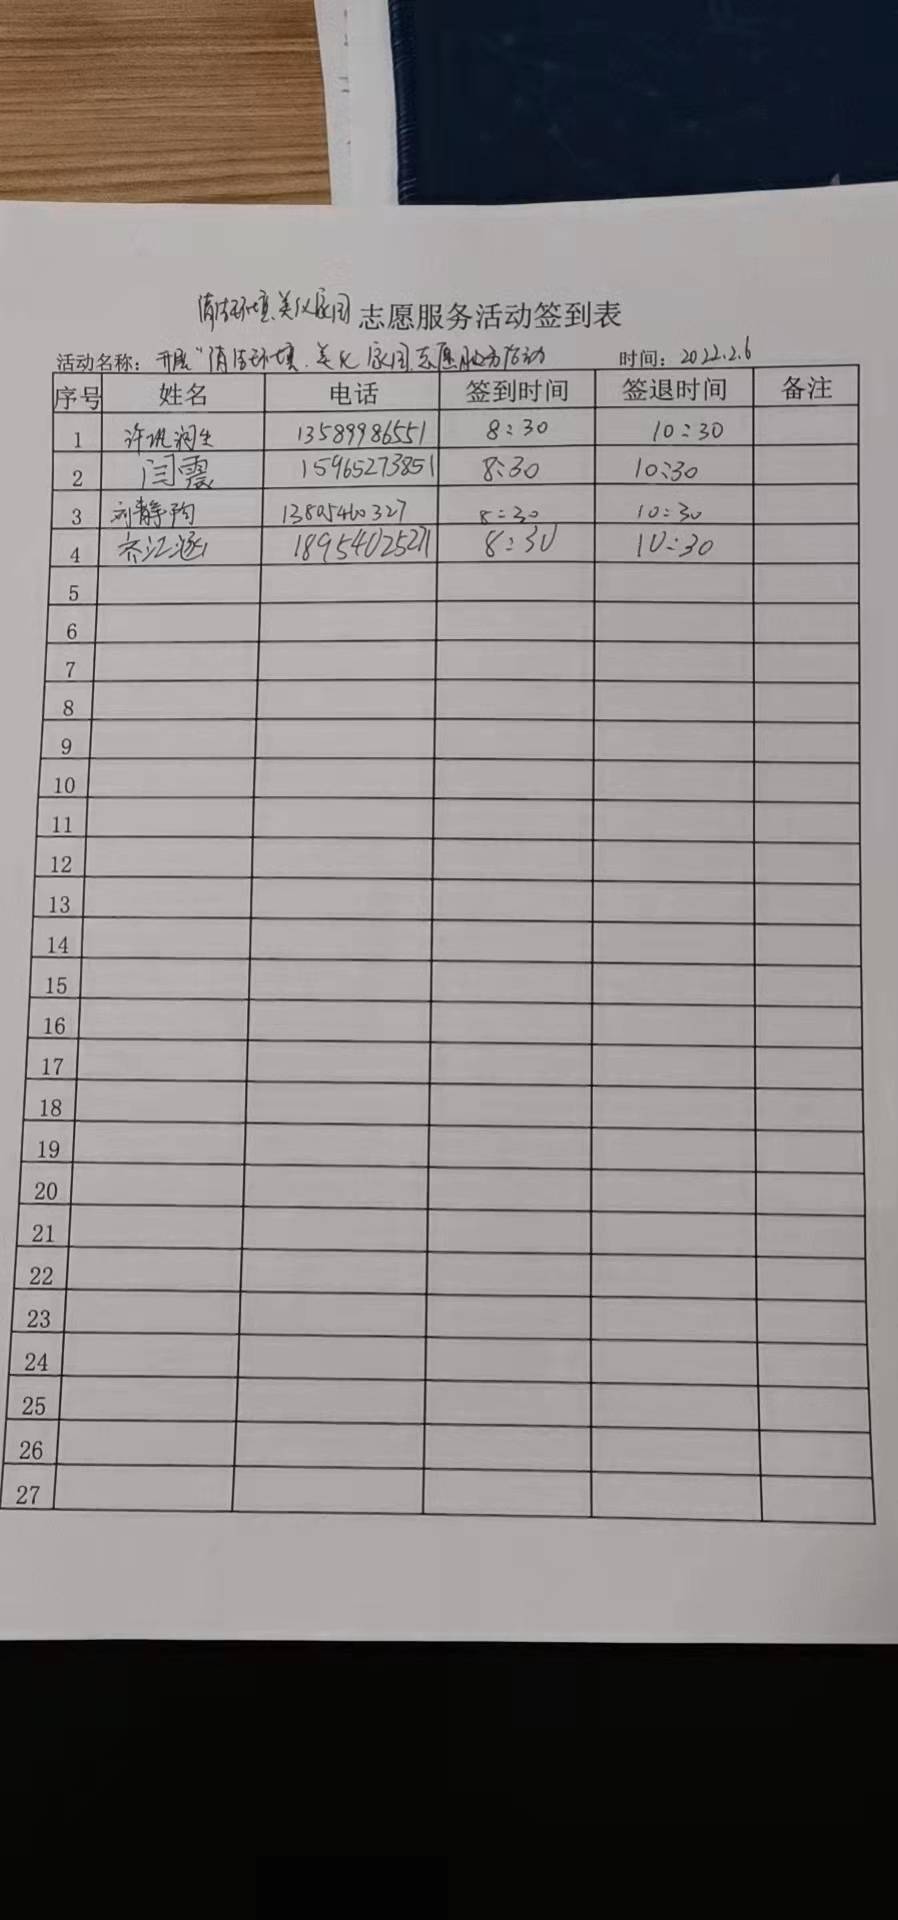 清洁环境.美化家园志愿服务活动签到表
活动名称：开展“清洁环境.美化家园志愿服务活动 时间：2022.2.6
序号 姓名 电话 签到时间 签退时间 备注
1 许 润生 13589986551 8:30 10:30
2 闫震 15965273851 8:30 10:30
3 刘静 13805460327 8:30 10:30
4 齐江涵 18954025271 8:30 10:30
5
6
7
8
9
10
11
12
13
14
15
16
17
18
19
20
21
22
23
24
25
26
27